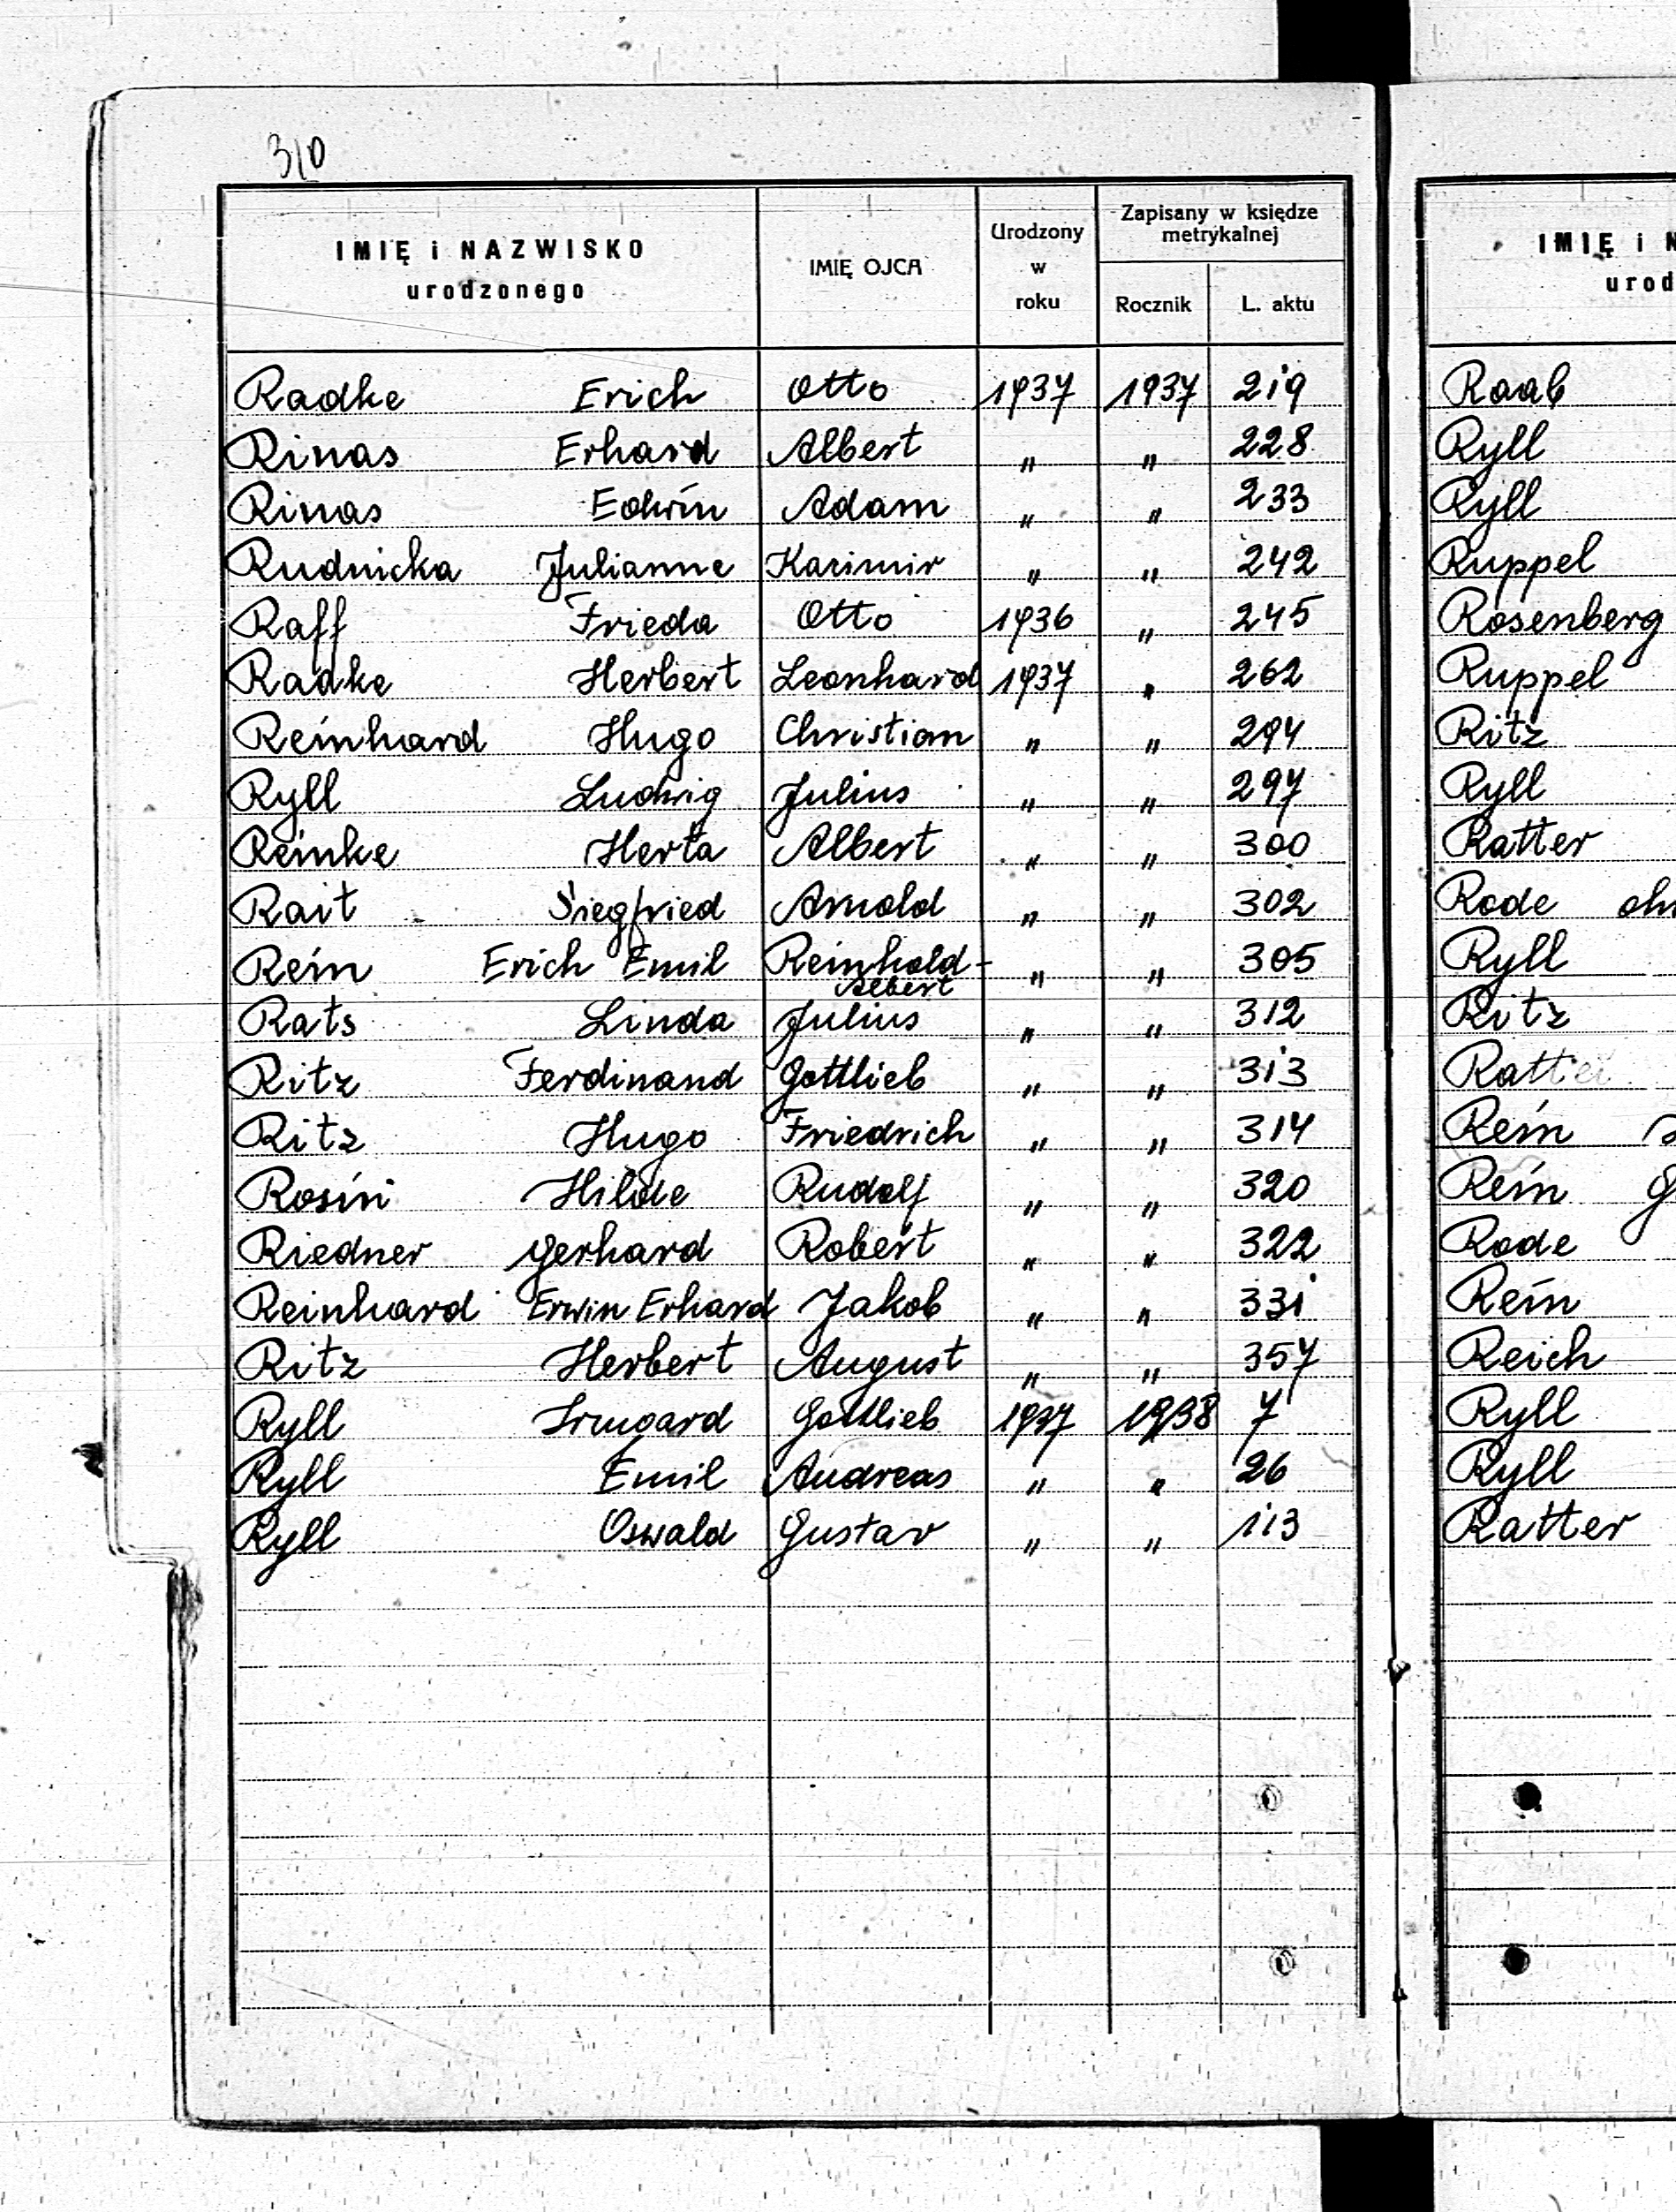 310
IMIĘ i NAZWISKO
urodzonego
IMIĘ OJCA
Urodzony
w
roku
Zapisany w księdze
metrykalnej
Rocznik
L. aktu
Radke Erich Otto 1937 1937 219
Rinas Erhard Albert " " 228
Rinas Edwin Adam " " 233
Rudnicka Julianne Kazimir " " 242
Raff Frieda Otto 1936 " 245
Radke Herbert Leonhard 1937 " 262
Reinhard Hugo Christian " " 294
Ryll Ludwig Julius " " 297
Reinke Herta Albert " " 300
Rait Siegfried Arnold " " 302
Rein Erich Emil Reinhold- " " 305
Albert
Rats Linda Julius " " 312
Ritz Ferdinand Gottlieb " " 313
Ritz Hugo Friedrich " " 314
Rosin Hilde Rudolf " " 320
Riedner Gerhard Robert " " 322
Reinhard Erwin Erhard Jakob " " 331
Ritz Herbert August " " 357
Ryll Irmgard Gottlieb 1937 1938 7
Ryll Emil Andreas " " 26
Ryll Oswald Gustav " " 113
IMIĘ i N
urod
Raab
Ryll
Ryll
Ruppel
Rosenberg
Ruppel
Ritz
Ryll
Ratter
Rode
Ryll
Ritz
Ratter
Rein
Rein G
Rode
Rein
Reich
Ryll
Ryll
Ratter